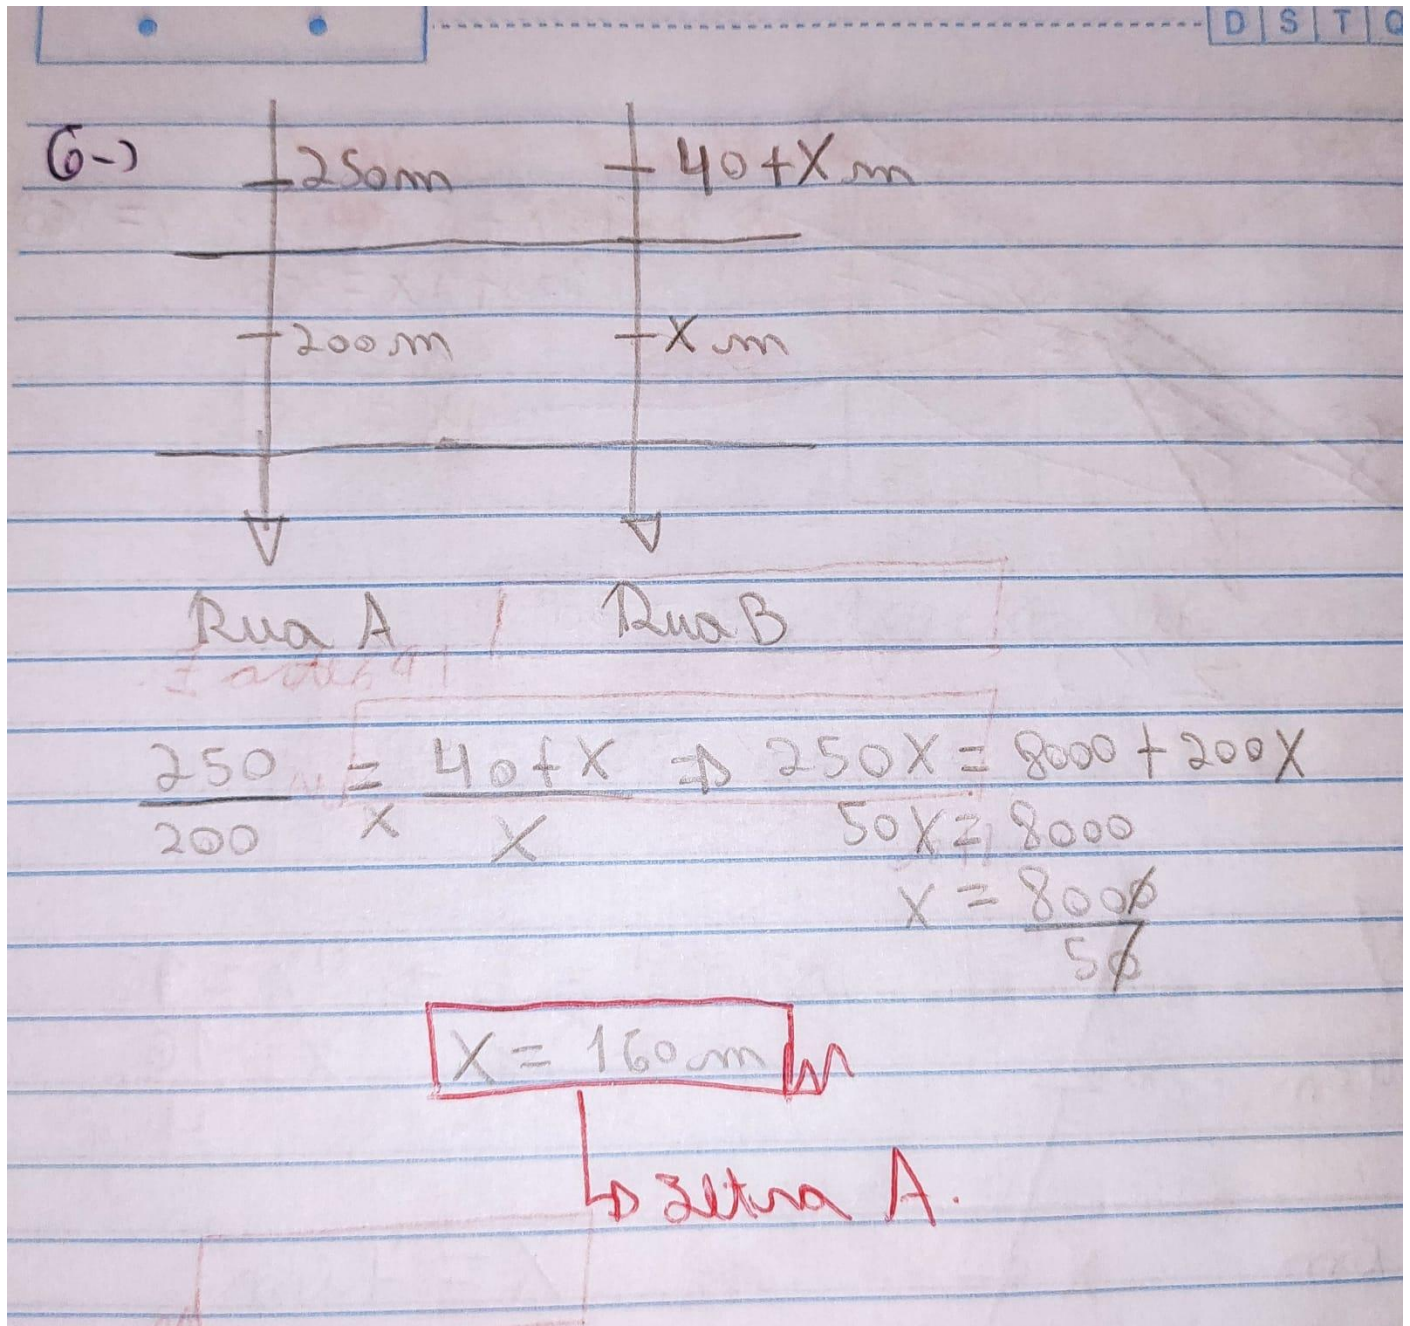 D S T Q
6-) 250m 40+X m
200 m X m
Rua A Rua B
250 = 40+X ⇒ 250X = 8000 + 200X
200 X X 50X = 8000
X = 8000
50
X = 160 m
↳ Letra A.